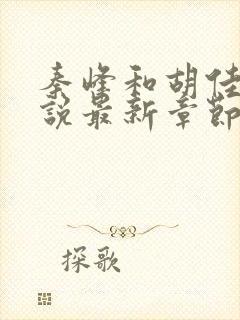 秦峰和胡佳
說最新章節
探歌